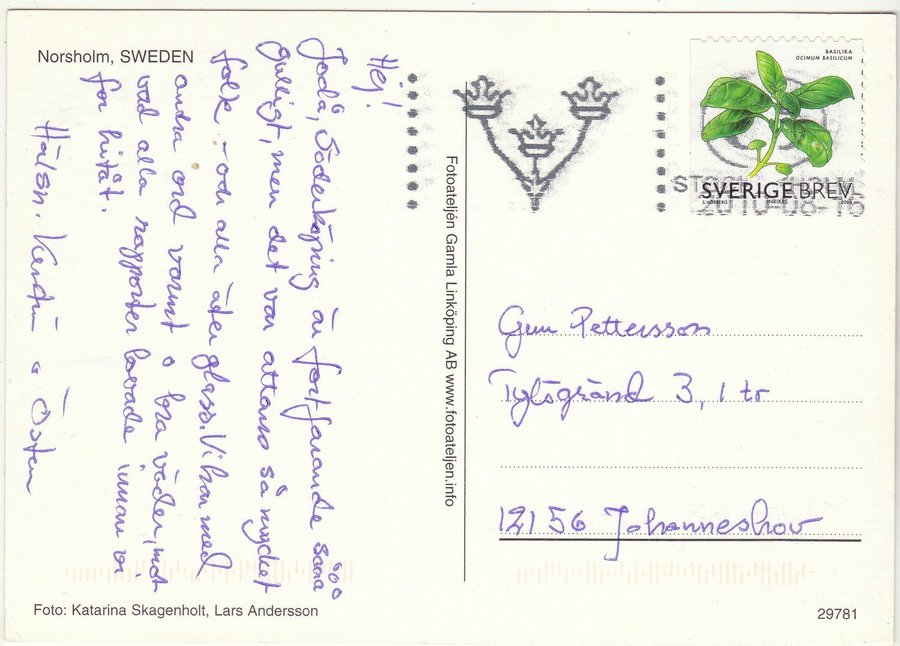 Norsholm, SWEDEN
Hej!
Jodå, Söderköping är fortfarande sååå
gulligt, men det var attans så mycket
folk - och alla äter glass. Vi har med
andra ord varmt o bra väder, mot
vad alla rapporter lovade innan vi
for hitåt.
Hälsn. Kerstin o Östen
Foto: Katarina Skagenholt, Lars Andersson
Fotoateljén Gamla Linköping AB www.fotoateljen.info
BASILIKA
OCIMUM BASILICUM
SVERIGE BREV
INRIKES
2010-08-16
Gun Pettersson
Tylögränd 3, 1 tr
121 56 Johanneshov
29781